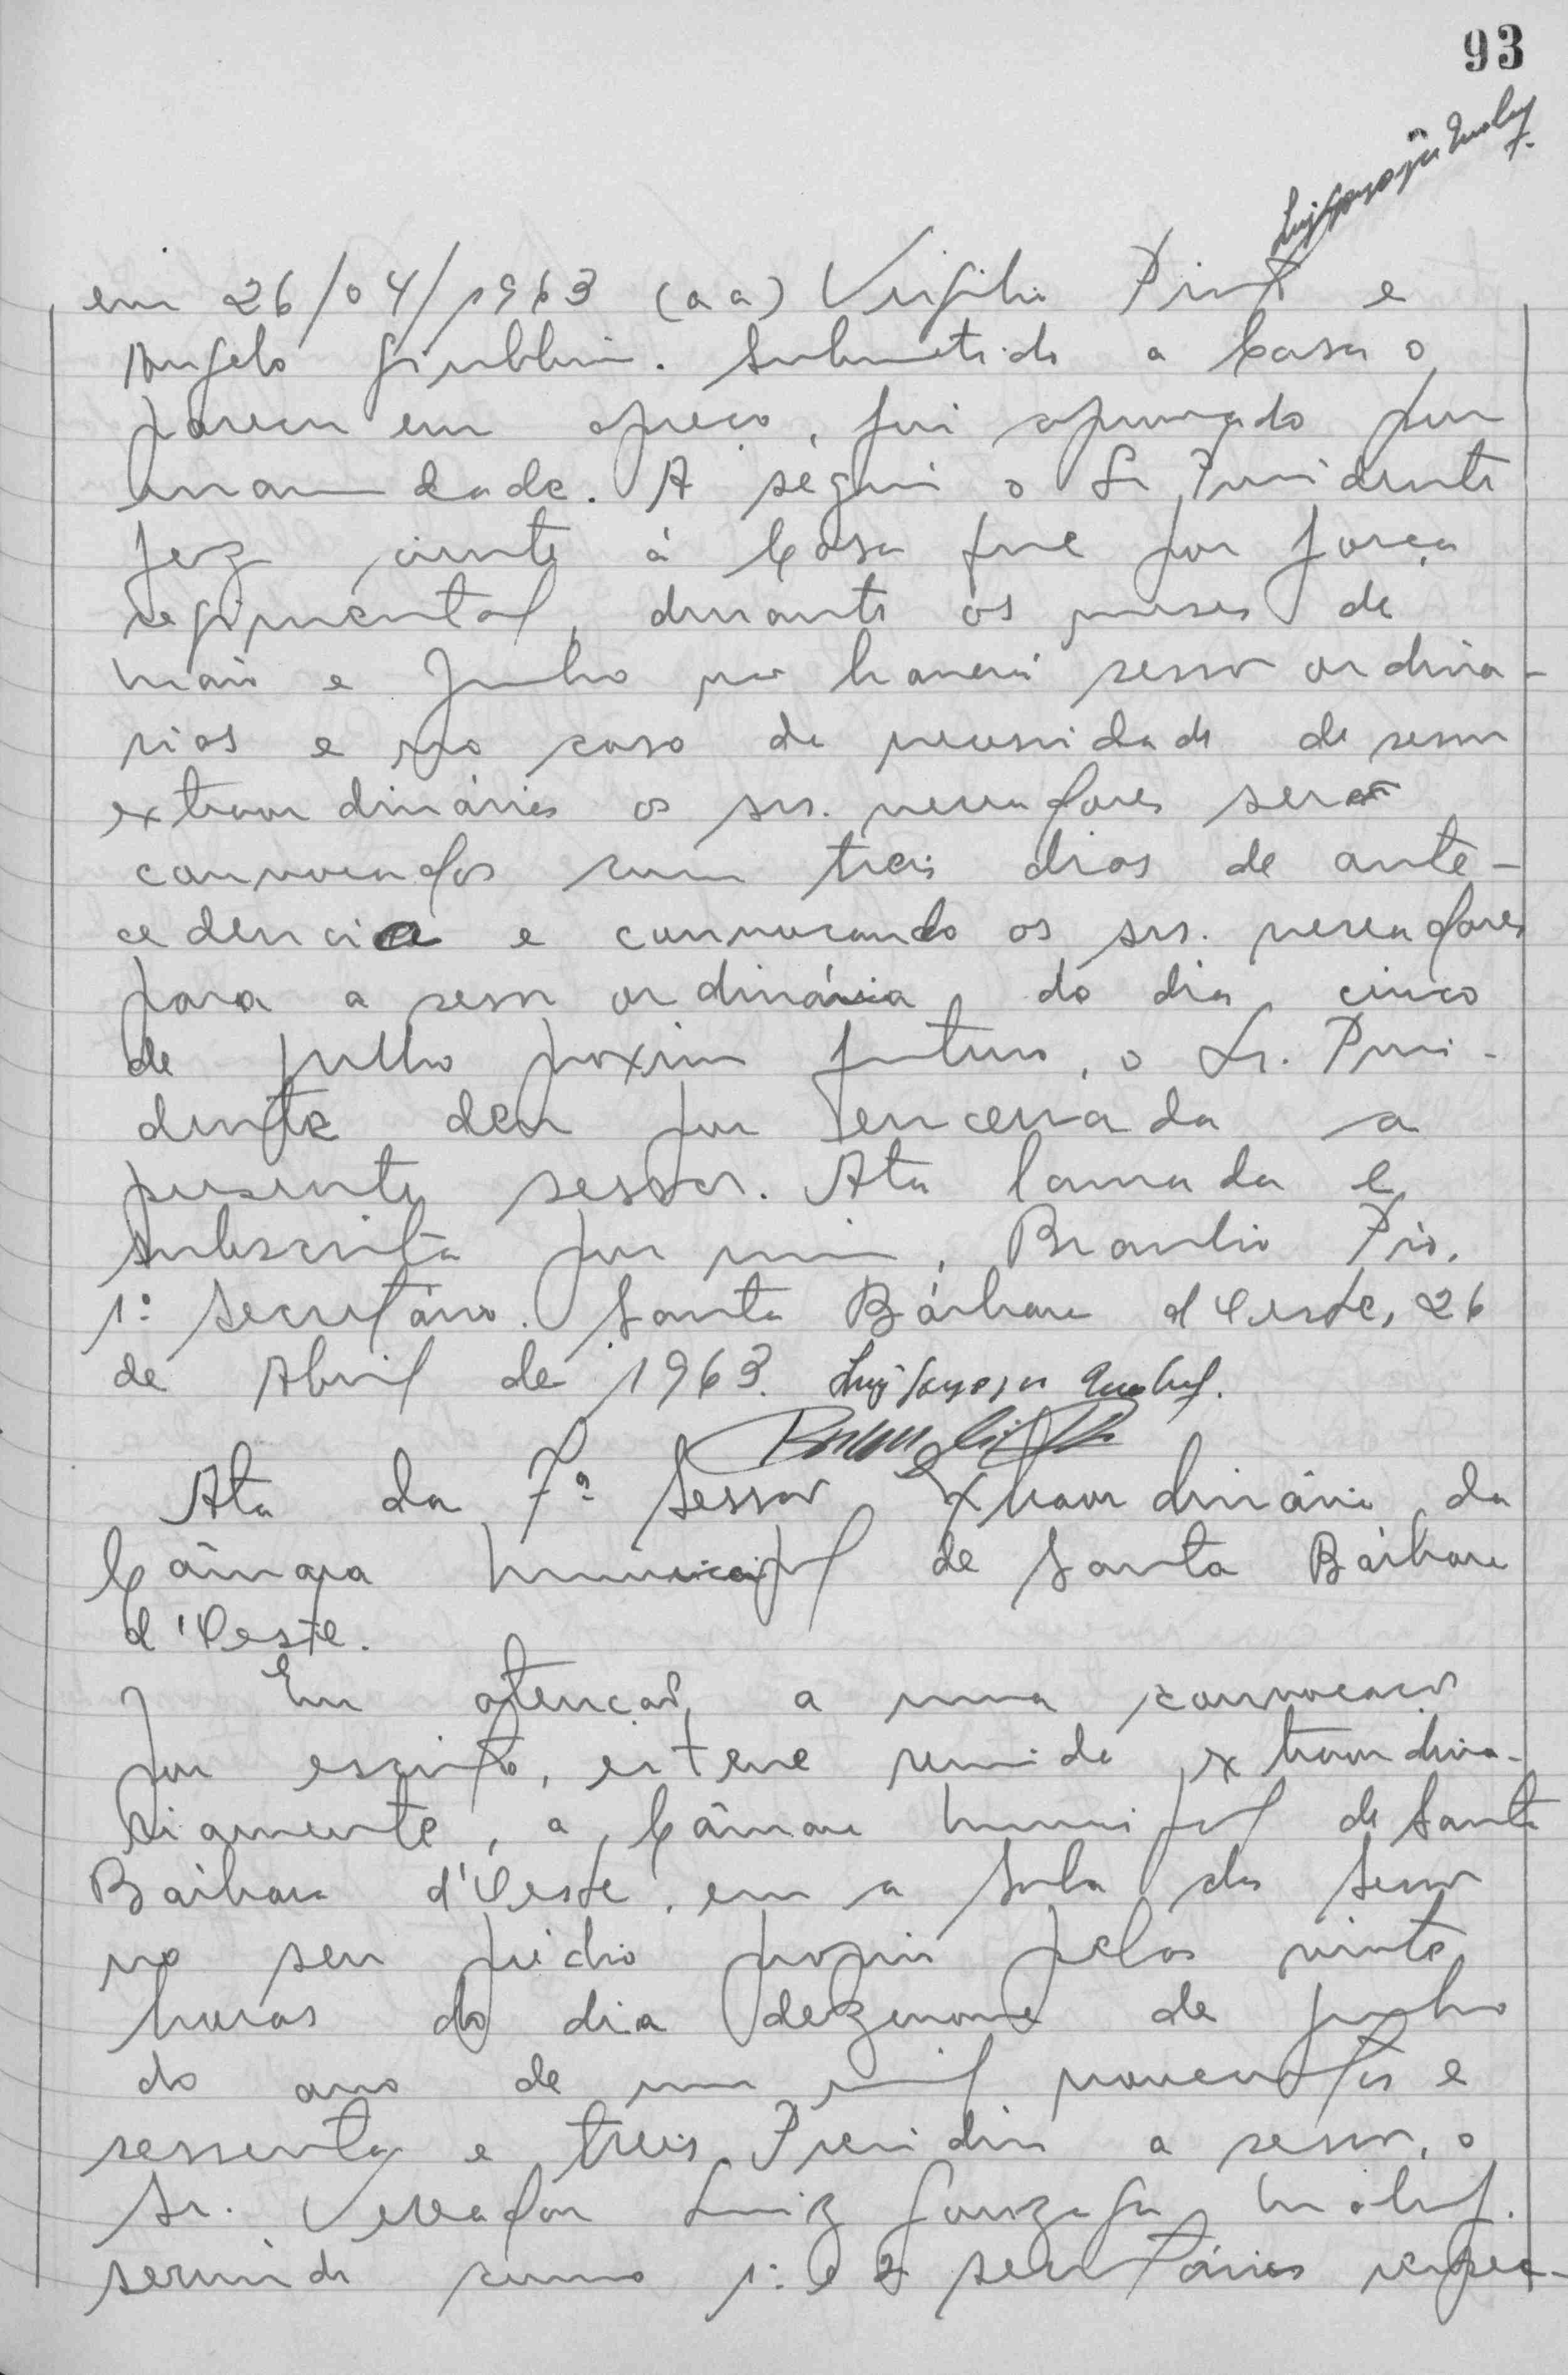 93
em 26/04/1963 (a a) Virgilio Pinto e
Angelo Giubbini. Submetido a Casa o
parecer em apreço, foi aprovado por
unanimidade. A seguir o Sr Presidente
fez ciente à Casa que por força
regimental, durante os meses de
maio e Junho não haverá sessão ordiná-
rias e no caso de necessidade de sessão
extraordinários os srs. vereadores serão
convocados com treis dias de ante-
cedencia e convocando os srs. vereadores
para a sessão ordinária do dia cinco
de julho proximo futuro, o Sr. Presi-
dente deu por encerrada a
presente sessão. Ata lavrada e
subscrita por mim, Braulio Pio,
1º Secretário. Santa Bárbara d'Oeste, 26
de Abril de 1963. Luiz Gonzaga
Ata da 7ª Sessão Extraordinária da
Câmara Municipal de Santa Bárbara
d'Oeste.
Em atenção a uma convocação
por escrito, esteve reunida extraordina-
riamente, a Câmara Municipal de Santa
Bárbara d'Oeste, em a Sala das Sessão
no seu prédio proprio pelas vinte
horas do dia dezenove de junho
do ano de um mil novecentos e
sessenta e treis. Presidiu a sessão, o
Sr. Vereador Luiz Gonzaga
servindo como 1º e 2º secretários respec-